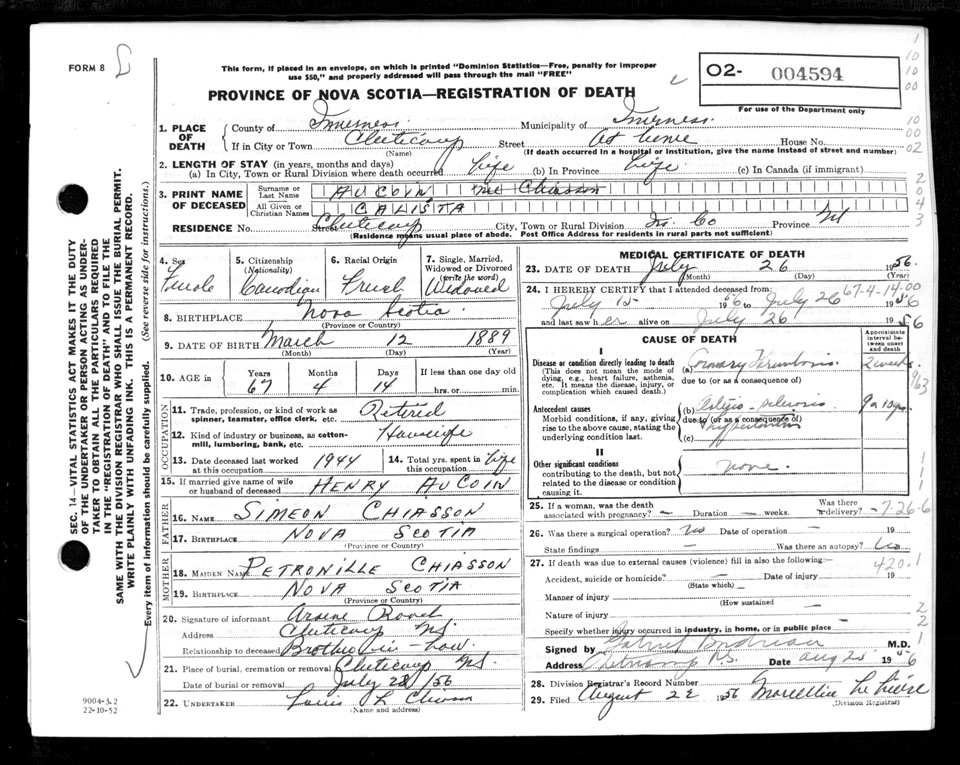 FORM 8
This form, if placed in an envelope, on which is printed "Dominion Statistics—Free, penalty for improper
use $50," and properly addressed will pass through the mail "FREE"
O2- 004594
For use of the Department only
PROVINCE OF NOVA SCOTIA—REGISTRATION OF DEATH
1. PLACE OF DEATH
County of Inverness. Municipality of Inverness.
If in City or Town Cheticamp Street At home House No.
(Name) (If death occurred in a hospital or institution, give the name instead of street and number)
2. LENGTH OF STAY (in years, months and days)
(a) In City, Town or Rural Division where death occurred Life (b) In Province Life (c) In Canada (if immigrant)
3. PRINT NAME OF DECEASED
Surname or Last Name AUCOIN, née Chiasson
All Given or Christian Names CALISTA
RESIDENCE No. Street Cheticamp City, Town or Rural Division In. Co Province NS
(Residence means usual place of abode. Post Office Address for residents in rural parts not sufficient)
4. Sex Female
5. Citizenship (Nationality) Canadian
6. Racial Origin French
7. Single, Married, Widowed or Divorced (write the word) Widowed
8. BIRTHPLACE Nova Scotia
(Province or Country)
9. DATE OF BIRTH March 12 1889
(Month) (Day) (Year)
10. AGE in Years Months Days If less than one day old
67 4 14 hrs. or min.
OCCUPATION
11. Trade, profession, or kind of work as spinner, teamster, office clerk, etc. Retired
12. Kind of industry or business, as cotton-mill, lumbering, bank, etc. Housewife
13. Date deceased last worked at this occupation 1944
14. Total yrs. spent in this occupation Life
15. If married give name of wife or husband of deceased HENRY AUCOIN
FATHER
16. NAME SIMEON CHIASSON
17. BIRTHPLACE NOVA SCOTIA
(Province or Country)
MOTHER
18. MAIDEN NAME PETRONILLE CHIASSON
19. BIRTHPLACE NOVA SCOTIA
(Province or Country)
20. Signature of informant Arsene Roach
Address Cheticamp NS.
Relationship to deceased Brother in-law
21. Place of burial, cremation or removal Cheticamp NS
Date of burial or removal July 28/56
22. UNDERTAKER Louis L Chiasson
(Name and address)
MEDICAL CERTIFICATE OF DEATH
23. DATE OF DEATH July 26 1956.
(Month) (Day) (Year)
24. I HEREBY CERTIFY that I attended deceased from: 67-4-14-00
July 15 1956 to July 26 1956
and last saw h er alive on July 26 1956
CAUSE OF DEATH
Approximate interval between onset and death
I
Disease or condition directly leading to death (This does not mean the mode of dying, e.g., heart failure, asthma, etc. It means the disease, injury, or complication which caused death.)
(a) Coronary Thrombosis 2 weeks
due to (or as a consequence of)
Antecedent causes
Morbid conditions, if any, giving rise to the above cause, stating the underlying condition last.
(b) 9 a 10 yrs.
due to (or as a consequence of)
(c)
II
Other significant conditions
contributing to the death, but not related to the disease or condition causing it.
none.
25. If a woman, was the death associated with pregnancy? — Duration — weeks. Was there delivery? -7-26-6
26. Was there a surgical operation? No Date of operation — 19
State findings — Was there an autopsy? No
27. If death was due to external causes (violence) fill in also the following:— 420.1
Accident, suicide or homicide? — Date of injury 19
(State which)
Manner of injury
(How sustained)
Nature of injury
Specify whether injury occurred in industry, in home, or in public place —
Signed by M.D.
Address Cheticamp N.S. Date Aug 20 1956
28. Division Registrar's Record Number
29. Filed August 22 1956
(Division Registrar)
SEC. 14—VITAL STATISTICS ACT MAKES IT THE DUTY
OF THE UNDERTAKER OR PERSON ACTING AS UNDER-
TAKER TO OBTAIN ALL THE PARTICULARS REQUIRED
IN THE "REGISTRATION OF DEATH" AND TO FILE THE
SAME WITH THE DIVISION REGISTRAR WHO SHALL ISSUE THE BURIAL PERMIT.
WRITE PLAINLY WITH UNFADING INK. THIS IS A PERMANENT RECORD.
Every item of information should be carefully supplied. (See reverse side for instructions.)
9004-3.2
22-10-52